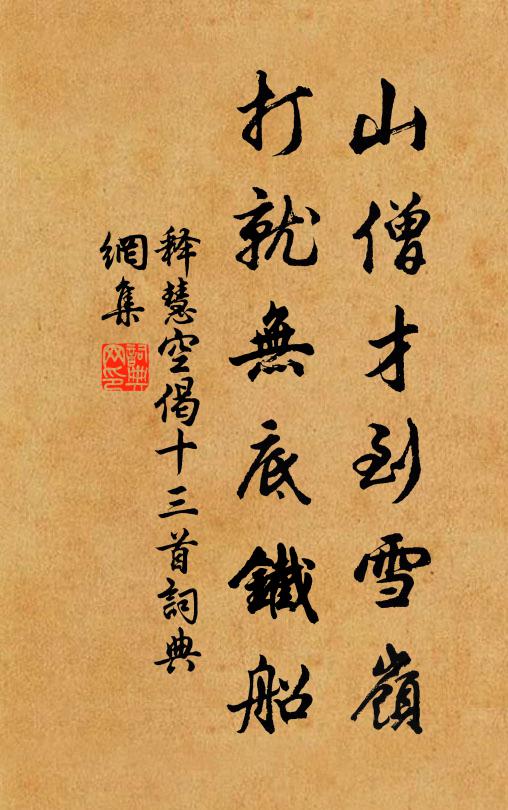 山僧才到雪嶺
打就無底鐵船
释慧空偈十三首詞典
網集
詞典
网印